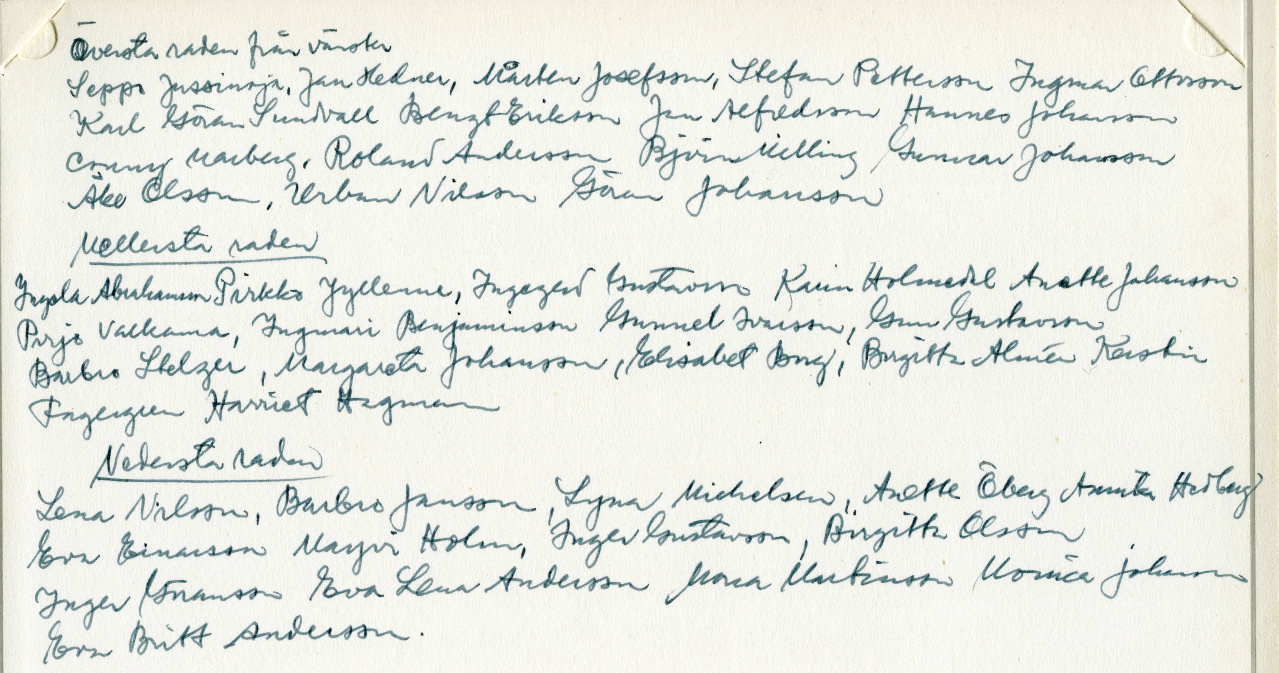 Översta raden från vänster
Seppo Jussinoja, Jan Hedner, Mårten Josefsson, Stefan Pettersson Ingmar Ottosson
Karl Göran Sundvall Bengt Eriksson Jan Alfredsson Hannes Johansson
Conny Marberg, Roland Andersson Björn Melling Gunnar Johansson
Åke Olsson, Urban Nilsson Göran Johansson
Mellersta raden
Abrahamson Pirkko Ingegerd Gustavsson Karin Holmedal Anette Johansson
Pirjo Valkama, Ingmari Benjaminson Gunnel Ivarsson, Gun Gustavsson
Barbro Stelzer, Margareta Johansson, Elisabet Borg, Birgitta Almén Kerstin
Fagergren Harriet Hagman
Nedersta raden
Lena Nilsson, Barbro Jansson, Michelsen, Anette Öberg Annika Hedberg
Eva Einarsson Mayvi Holm, Inger Gustavsson, Birgitta Olsson
Inger Göransson Eva Lena Andersson Mona Martinsson Monica Johansson
Eva Britt Andersson.